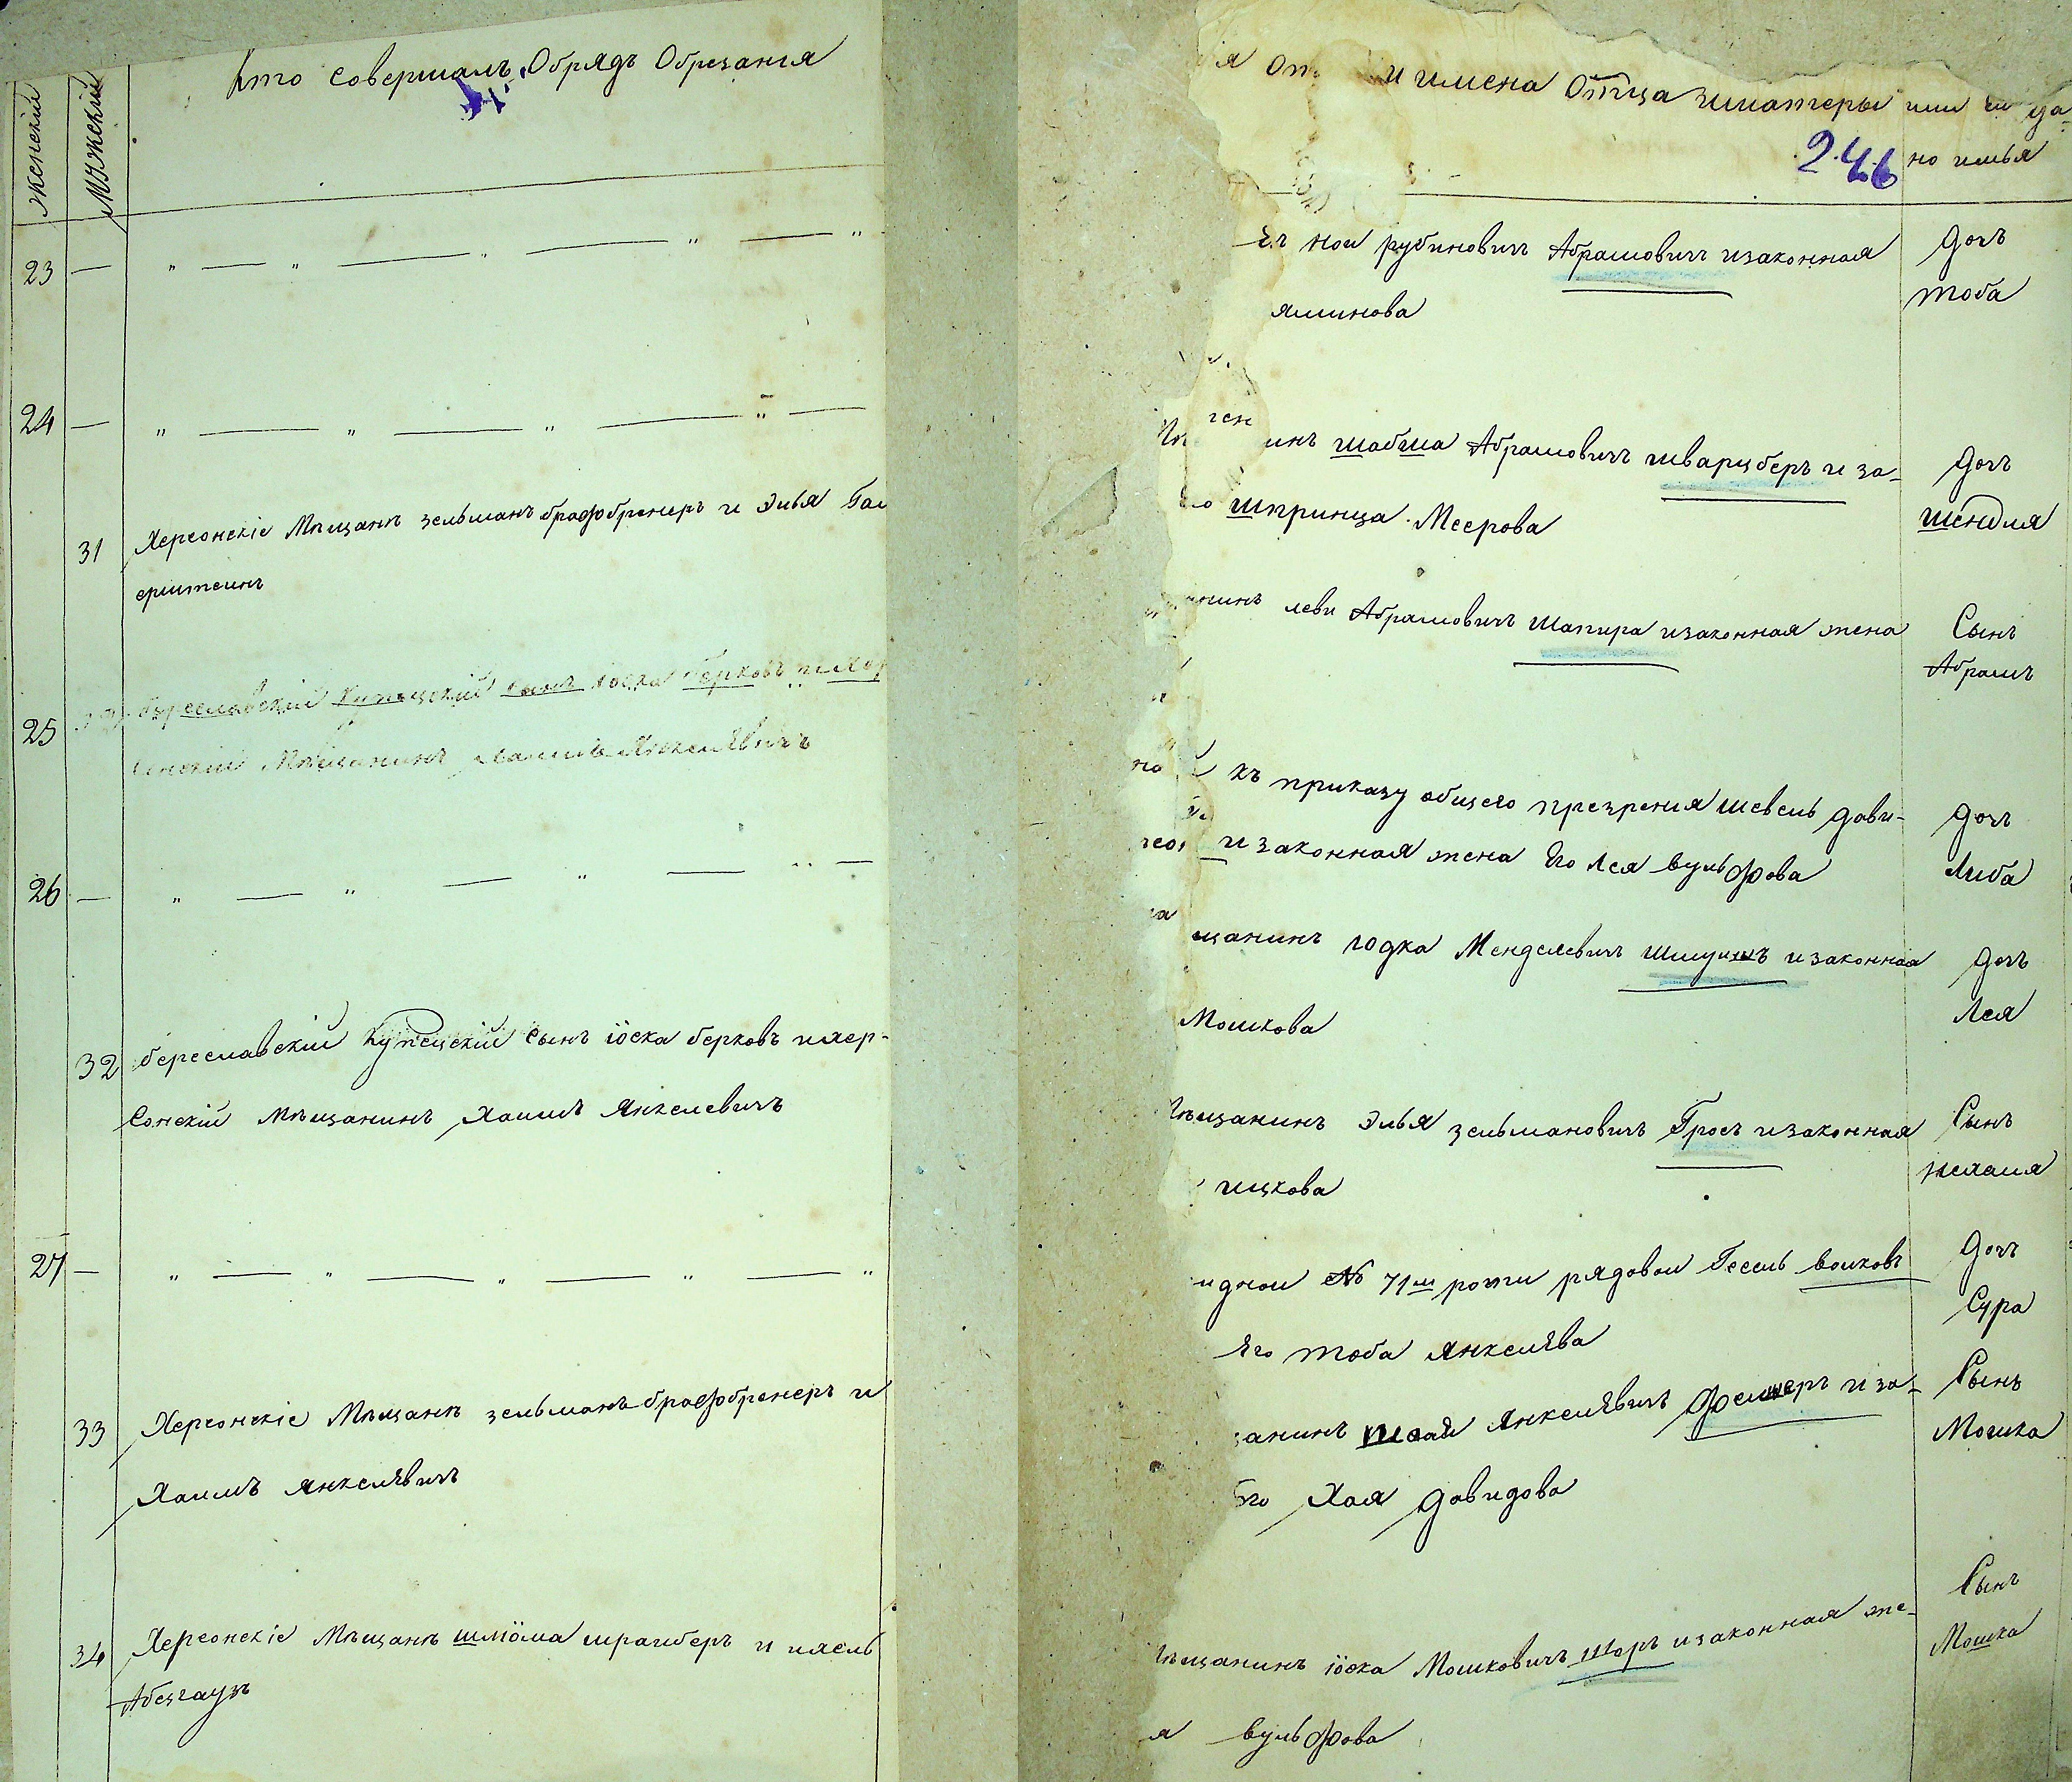 Женский
Мужеский
Кто совершалъ Обрядъ Обрезания
23 — „ — „ — „ — „ — „
24 — „ — „ — „ — „ —
31 Херсонскіе Мѣщанѣ зельманъ брафбренеръ и Элья Гал
ерштеинъ
25 береславскій Купецкій сынъ іоска берковъ и Хер
сонскій Мѣщанинъ Хаимъ Янкелявичъ
26 — „ — „ — „ — „ —
32 береславскій Купецкій Сынъ іоска берковъ и хер-
Сонскій Мѣщанинъ Хаимъ Янкелевичъ
27 — „ — „ — „ — „ — „
33 Херсонскіе Мѣщанѣ зельманъ брафбренеръ и
Хаимъ Янкелявичъ
34 Херсонскіе Мѣщанѣ шлӧма шраиберъ и
Абезгаузъ
и имена Отца иматеры или
246 но имья
нои рубиновичъ Абрамовичъ изаконная дочъ
яминова тоба
инъ шабша Абрамовичъ шварцберъ и за- дочъ
шпринца Меерова шендля
анинъ леви Абрамовичъ шапира изаконная жена Сынъ
Абрамъ
къ приказу общего презрения шевель дави- дочъ
изаконная жена Его Лея вульфова Либа
щанинъ годка Менделевичъ изаконная дочъ
Мошкова Лея
Мѣщанинъ Элья зельмановичъ Гросъ изаконная Сынъ
ицкова
№ 71й роти рядовои Гесель волковъ дочъ
Его тоба Янкелява Сура
занинъ Янкелявичъ и за- Сынъ
Его Хая давидова Мошка
Мѣщанинъ іоска Мошковичъ шоръ изаконная же- Сынъ
Мошка
я вульфова